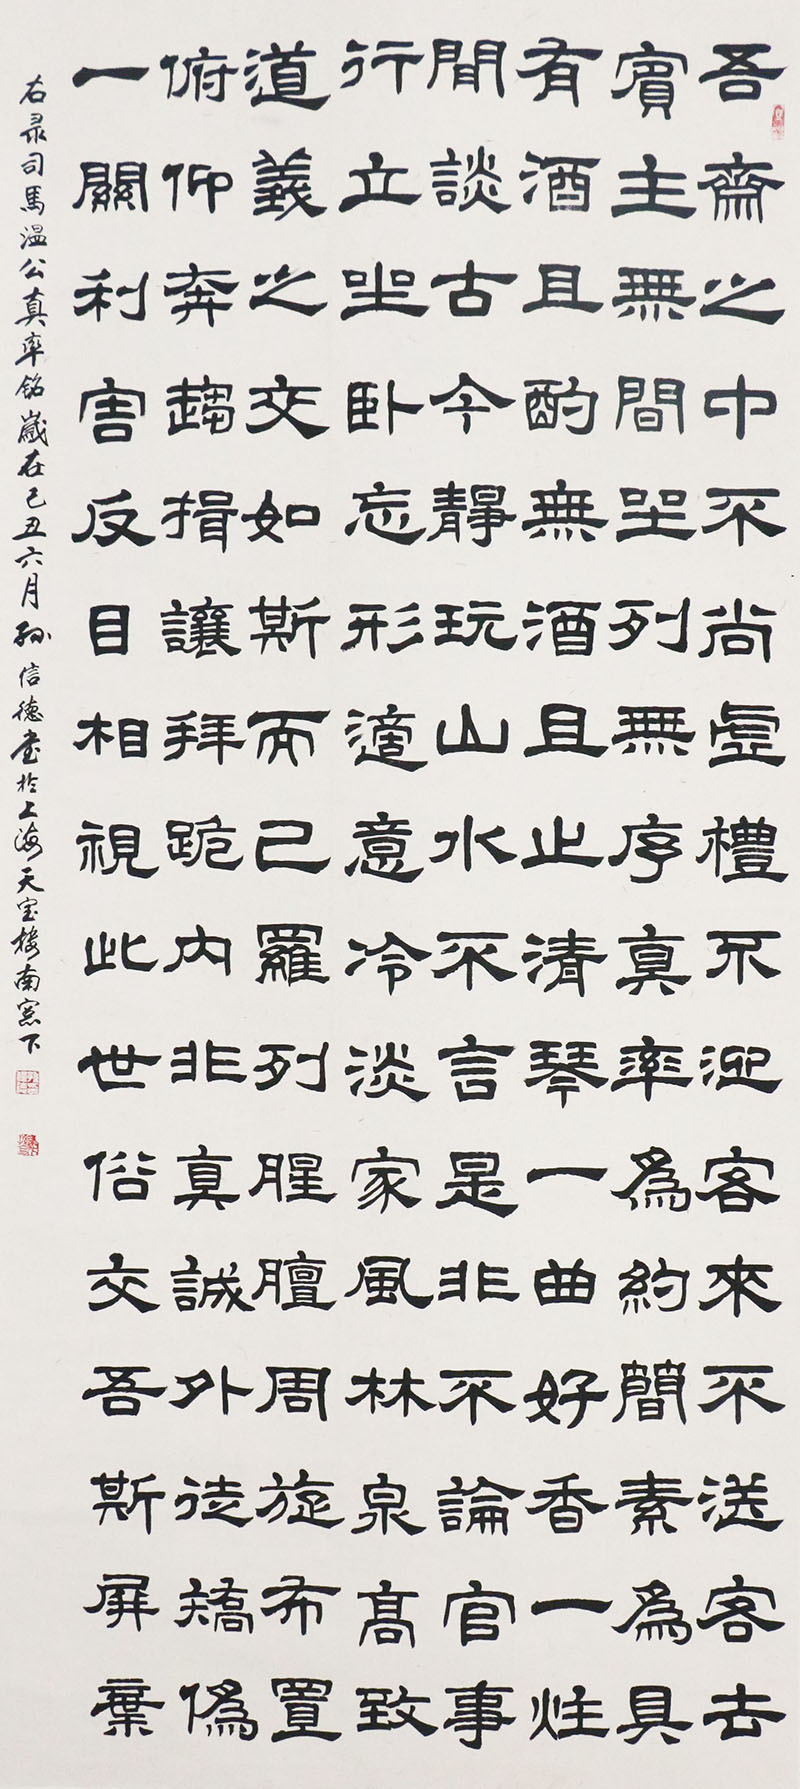 吾齋之中不尚虛禮不迎客來不送客去
賓主無間坐列無序真率為約簡素為具
有酒且酌無酒且止清琴一曲好香一炷
閒談古今靜玩山水不言是非不論官事
行立坐卧忘形適意冷淡家風林泉高致
道義之交如斯而已羅列腥膻周旋布置
俯仰奔趨揖讓拜跪內非真誠外徒矯偽
一關利害反目相視此世俗交吾斯屏棄
右录司馬温公真率銘歲在己丑六月孙信德書於上海天宝楼南窓下